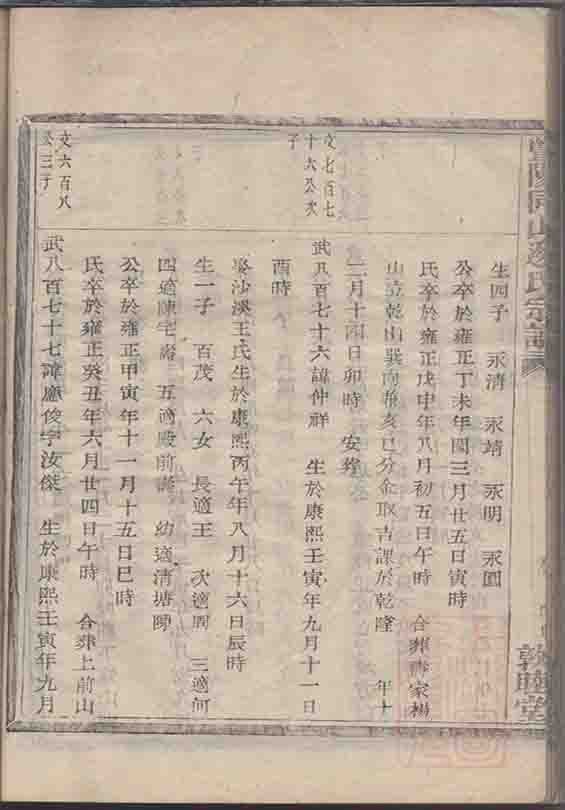 生四子 永清 永靖 永明 永圓
公卒於雍正丁未年閏三月廿五日寅時
氏卒於雍正戊申年八月初五日午時 合葬 家
山 乾山巽向兼亥巳分金取吉課於乾隆 年十
二月十四日卯時 安葬
文七百七
十六公次
子
武八百七十六諱仲祥 生於康熙壬寅年九月十一日
酉時
娶沙溪王氏生於康熙丙午年八月十六日辰時
生一子 百茂 六女 長適王 次適周 三適何
四適陳宅 五適殿前 幼適清塘陳
公卒於雍正甲寅年十一月十五日巳時
氏卒於雍正癸丑年六月廿四日午時 合葬上前山
文六百八
公三子
武八百七十七諱應俊字汝傑 生於康熙壬寅年九月
敦睦堂